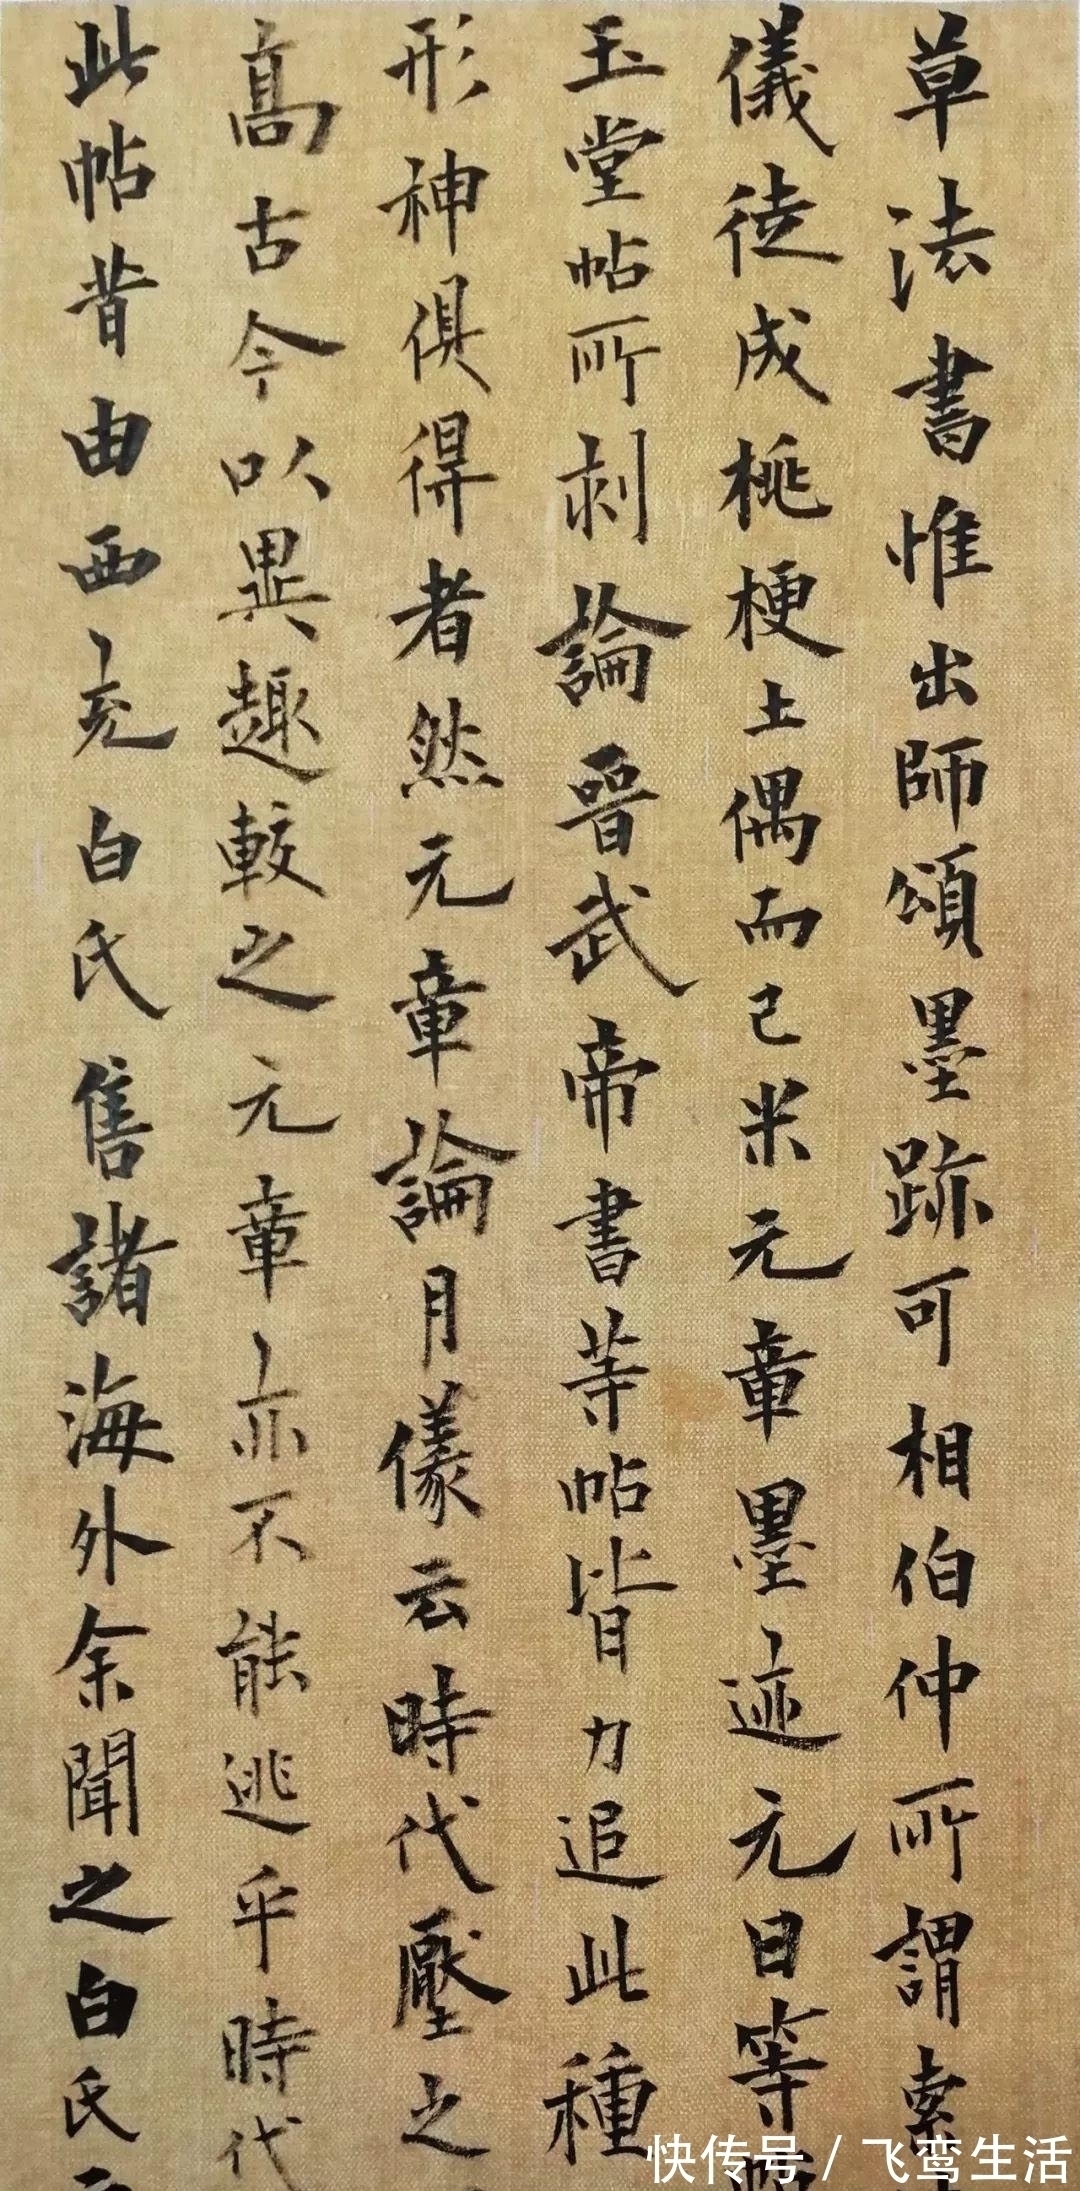 草法書惟出師頌墨跡可相伯仲所謂索
儀徒成桃梗土偶而已米元章墨迹元日等帖
玉堂帖所刻論晉武帝書等帖皆力追此種
形神俱得者然元章論月儀云時代壓之
高古今以異趣較之元章亦不能逃乎時代
此帖昔由西充白氏售諸海外余聞之白氏云
快传号/飞鸾生活